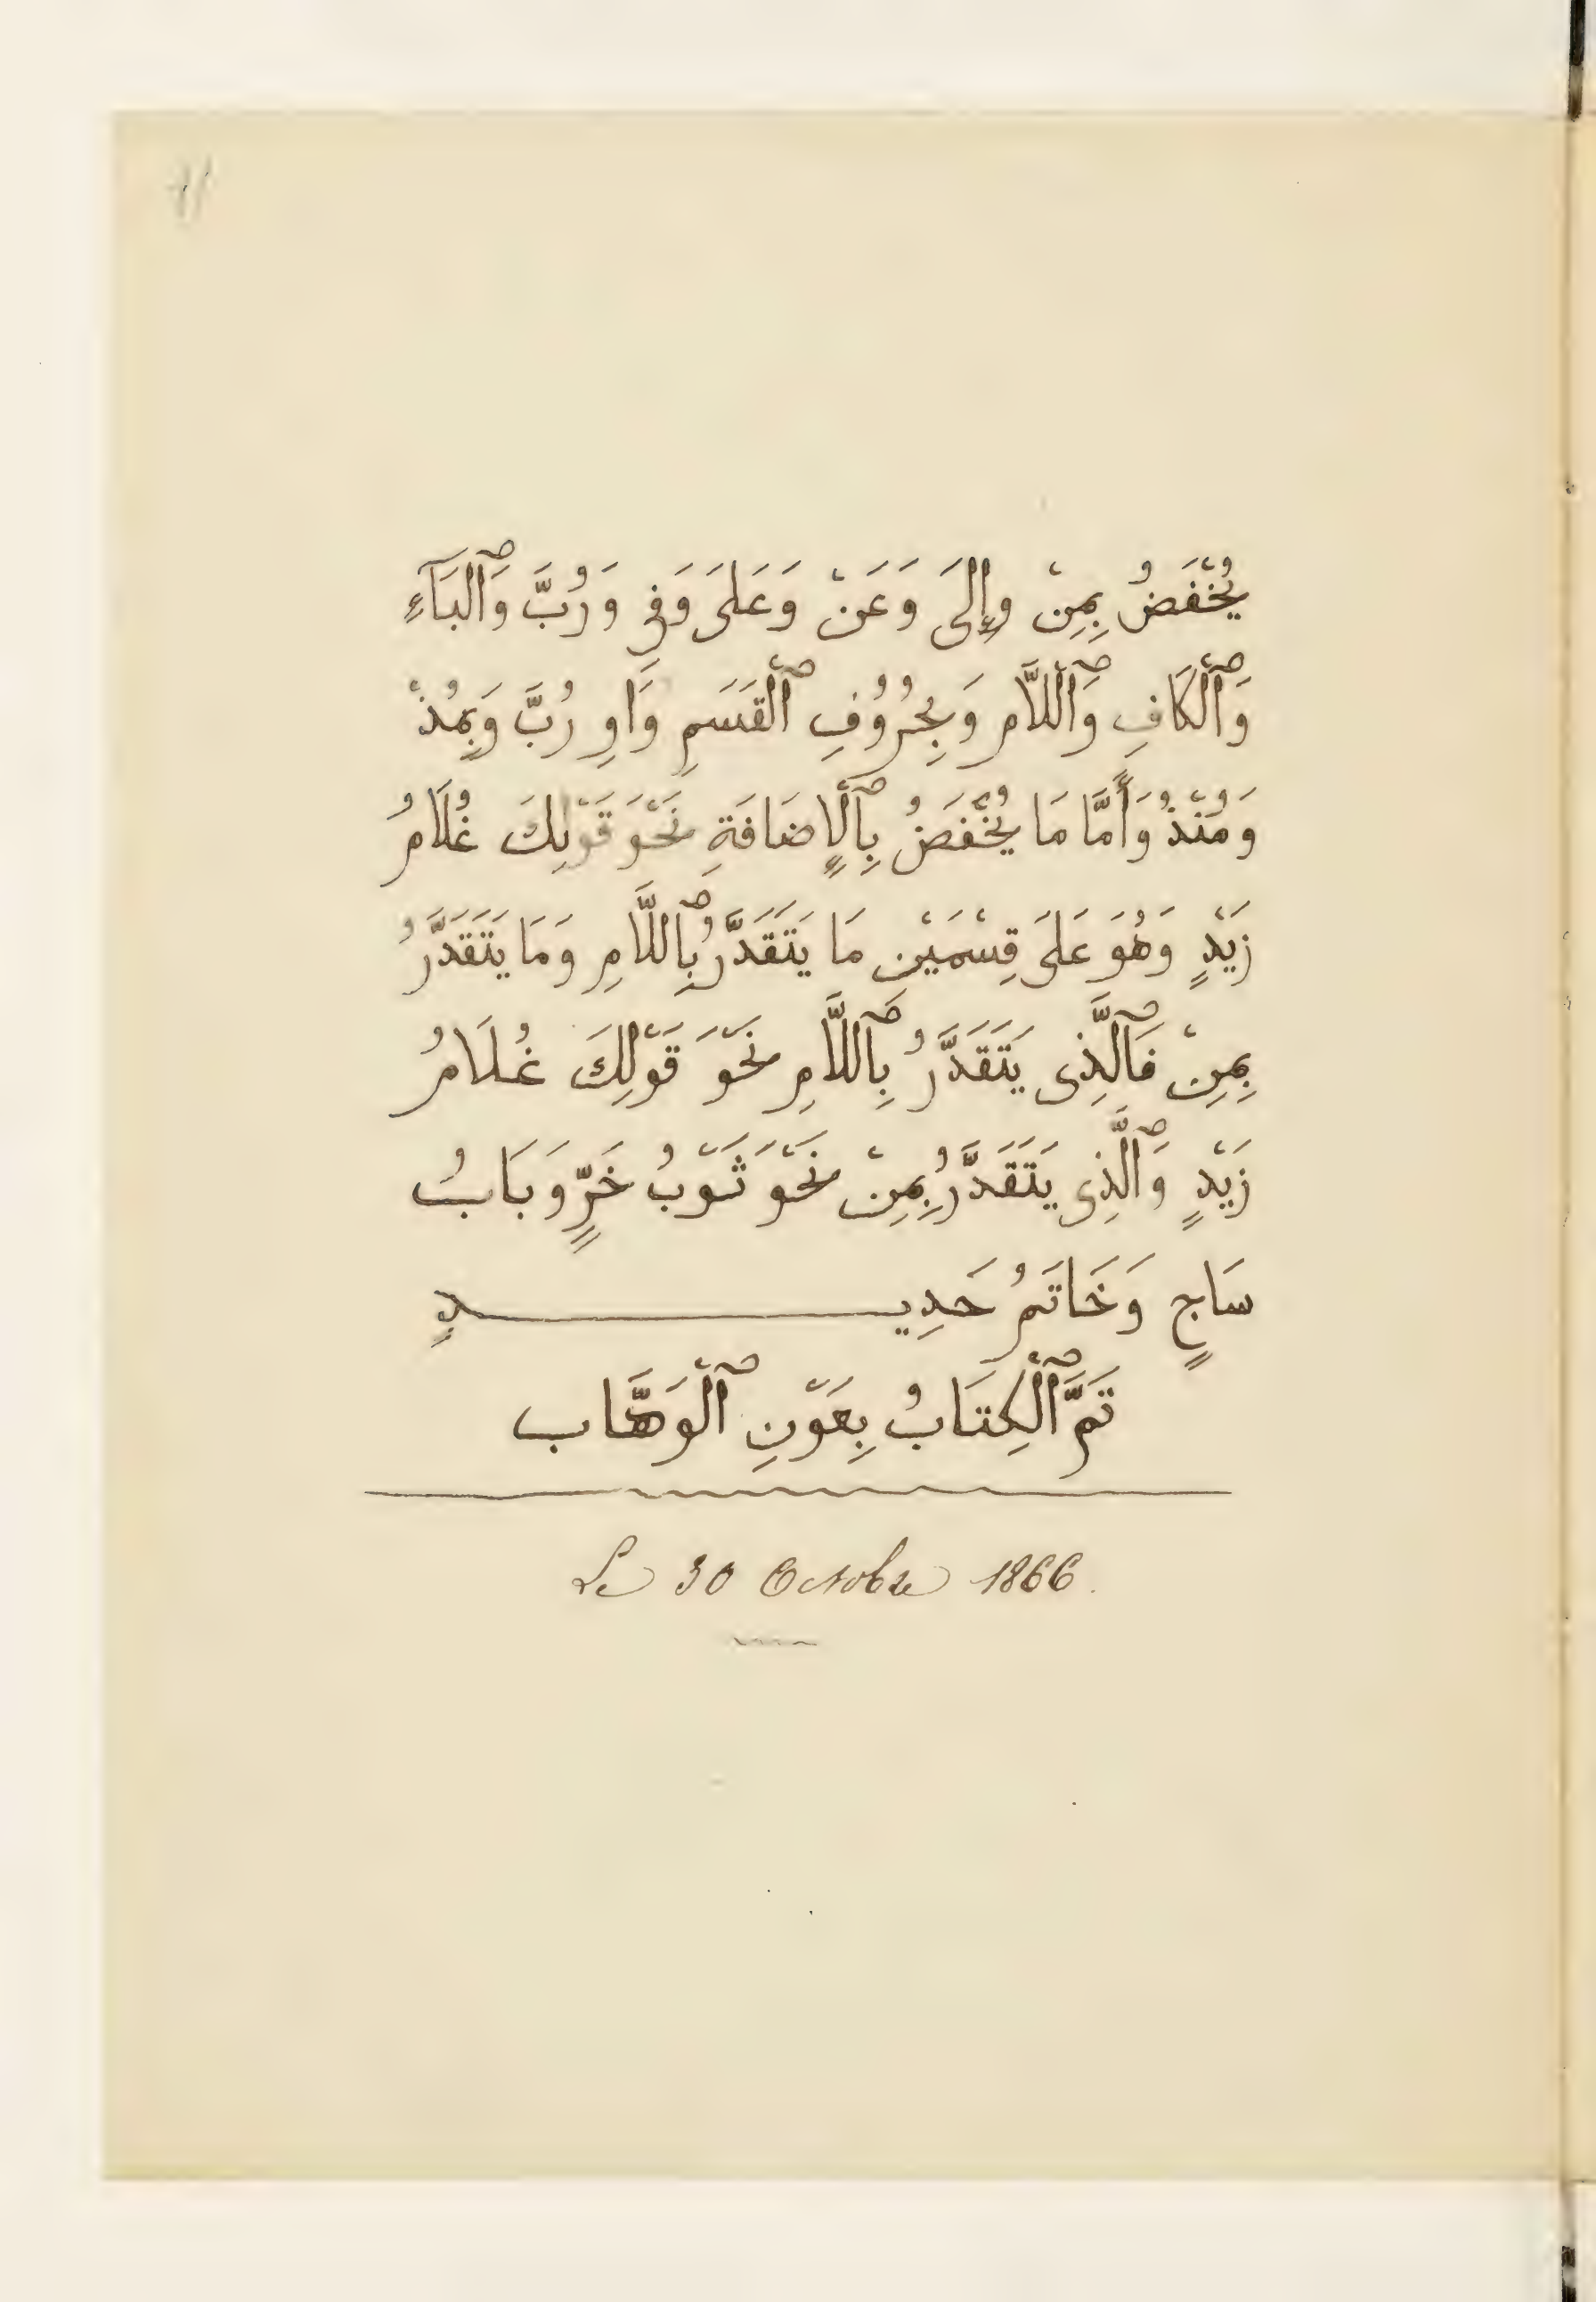 يُخْفَضُ بِمِنْ وإِلَى وَعَنْ وَعَلَى وَفِي وَرُبَّ وَٱلْبَآءِ
وَٱلْكَافِ وَٱللَّامِ وَبِحُرُوُفِ ٱلْقَسَمِ وَاوِ رُبَّ وَبِمُذْ
وَمُنْذُ وَأَمَّا مَا يُخْفَضُ بِٱلْإِضَافَةِ نَحْوَ قَوْلِكَ غُلَامُ
زَيْدٍ وَهُوَ عَلَى قِسْمَيْنِ مَا يَتَقَدَّرُ بِٱللَّامِ وَمَا يَتَقَدَّرُ
بِمِنْ فَٱلَّذِى يَتَقَدَّرُ بِٱللَّامِ نَحْوَ قَوْلِكَ غُلَامُ
زَيْدٍ وَٱلَّذِى يَتَقَدَّرُ بِمِنْ نَحْوَ ثَوْبُ خَزٍّ وَبَابُ
سَاجٍ وَخَاتَمُ حَدِيدٍ
تَمَّ ٱلْكِتَابُ بِعَوْنِ ٱلْوَهَّاب
Le 30 Octobre 1866.